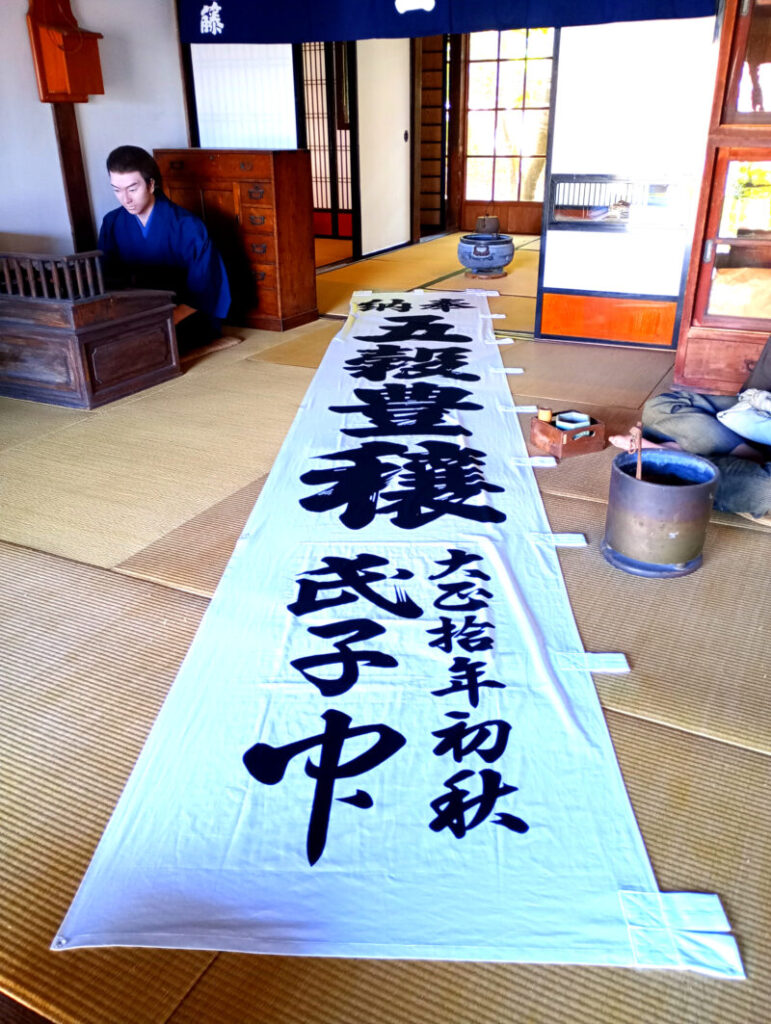 奉納
五穀豊穣
大正拾年初秋
氏子中
藤